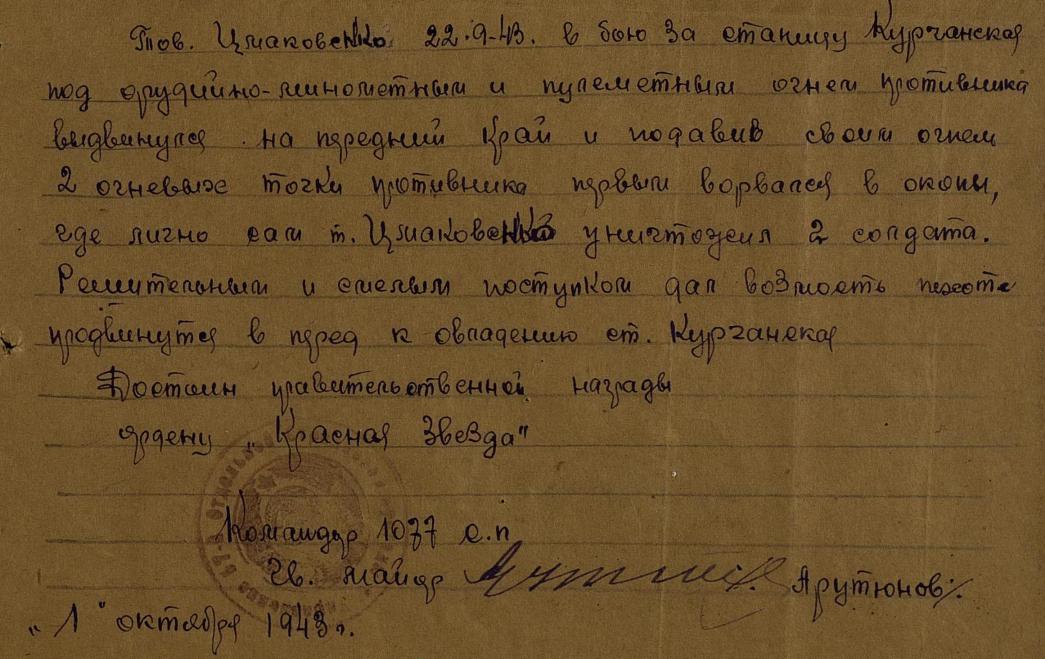 Тов. Цмаковенко 22.9.43. в бою за станицу Курчанская
под орудийно-минометным и пулеметным огнем противника
выдвинулся на передний край и подавив своим огнем
2 огневых точки противника первым ворвался в окопы,
где лично сам т. Цмаковенко уничтожил 2 солдата.
Решительным и смелым поступком дал возмость пехоте
продвинутся в перед к овладению ст. Курчанская
Достоин правительственной награды
ордену „Красная Звезда"
Командир 1077 с.п
Гв. майор Арутюнов
„1" октября 1943 г.